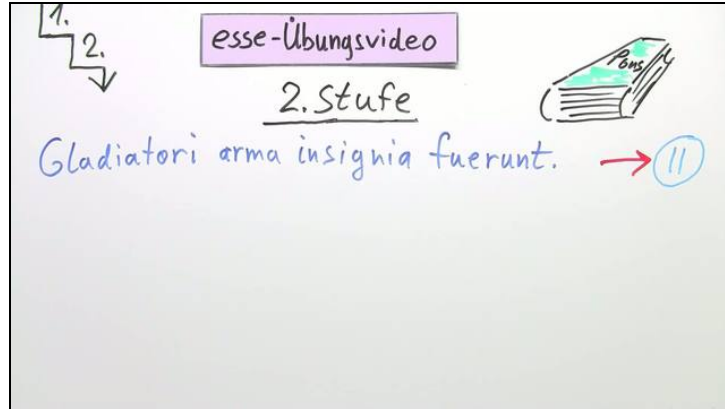 1.
2.
esse-Übungsvideo
Pons
2. Stufe
Gladiatori arma insignia fuerunt. → 11